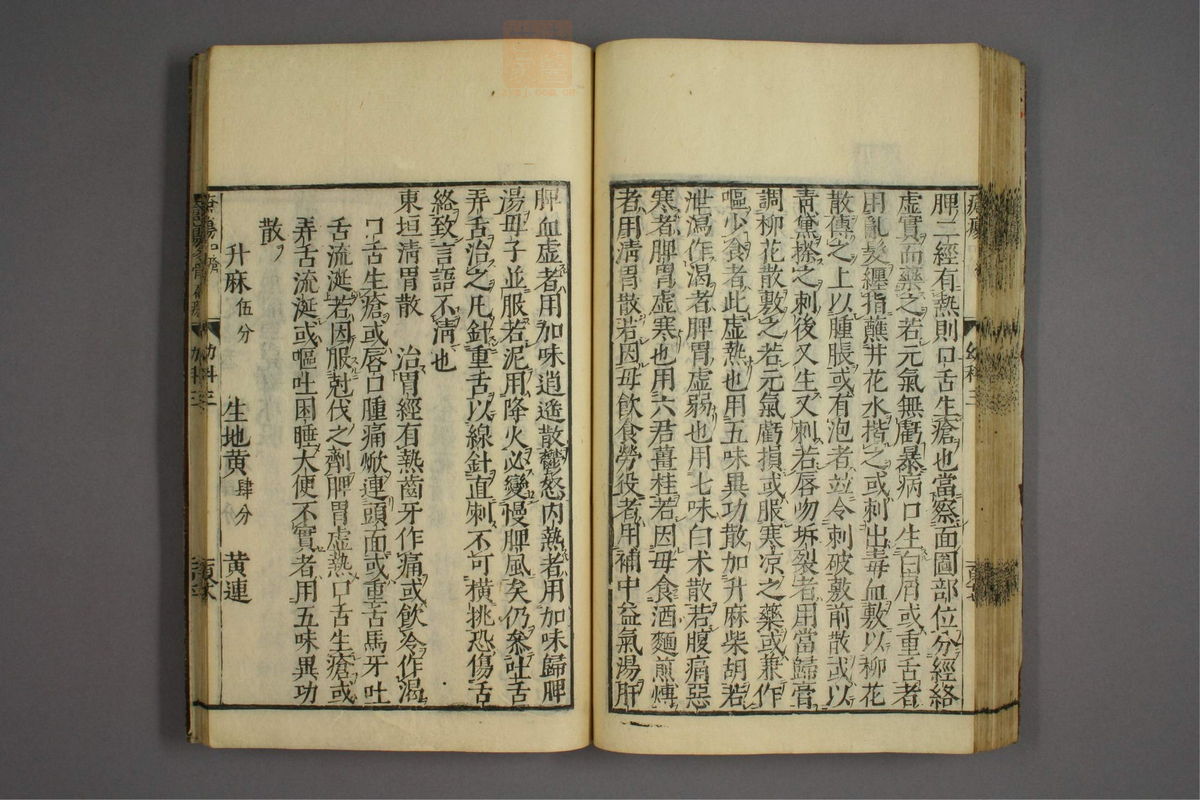 脾二經有熱則口舌生瘡也當察面圖部位分經絡
虛實而藥之若元氣無虧暴病口生白屑或重舌者
用亂髮纏指蘸井花水揩之或刺出毒血敷以柳花
散傳之上以腫脹或有泡者並令刺破敷前散或以
青黛搽之刺後又生又刺若唇吻坼裂者用當歸膏
調柳花散敷之若元氣虧損或服寒凉之藥或兼作
嘔少食者此虛熱也用五味異功散加升麻柴胡若
泄瀉作渴者脾胃虛弱也用七味白术散若腹痛惡
寒者脾胃虛寒也用六君薑桂若因母食酒麵煎煿
者用淸胃散若因母飲食勞役者用補中益氣湯肝
脾血虛者用加味逍遙散鬱怒內熱者用加味歸脾
湯母子並服若泥用降火必變慢脾風矣仍叅吐舌
弄舌治之凡針重舌以線針直刺不可橫挑恐傷舌
絡致言語不淸也
東垣淸胃散 治胃經有熱齒牙作痛或飲冷作渴
口舌生瘡或唇口腫痛焮連頭面或重舌馬牙吐
舌流涎若因服尅伐之劑脾胃虛熱口舌生瘡或
弄舌流涎或嘔吐困睡大便不實者用五味異功
散
升麻伍分 生地黄肆分 黄連
幼科三